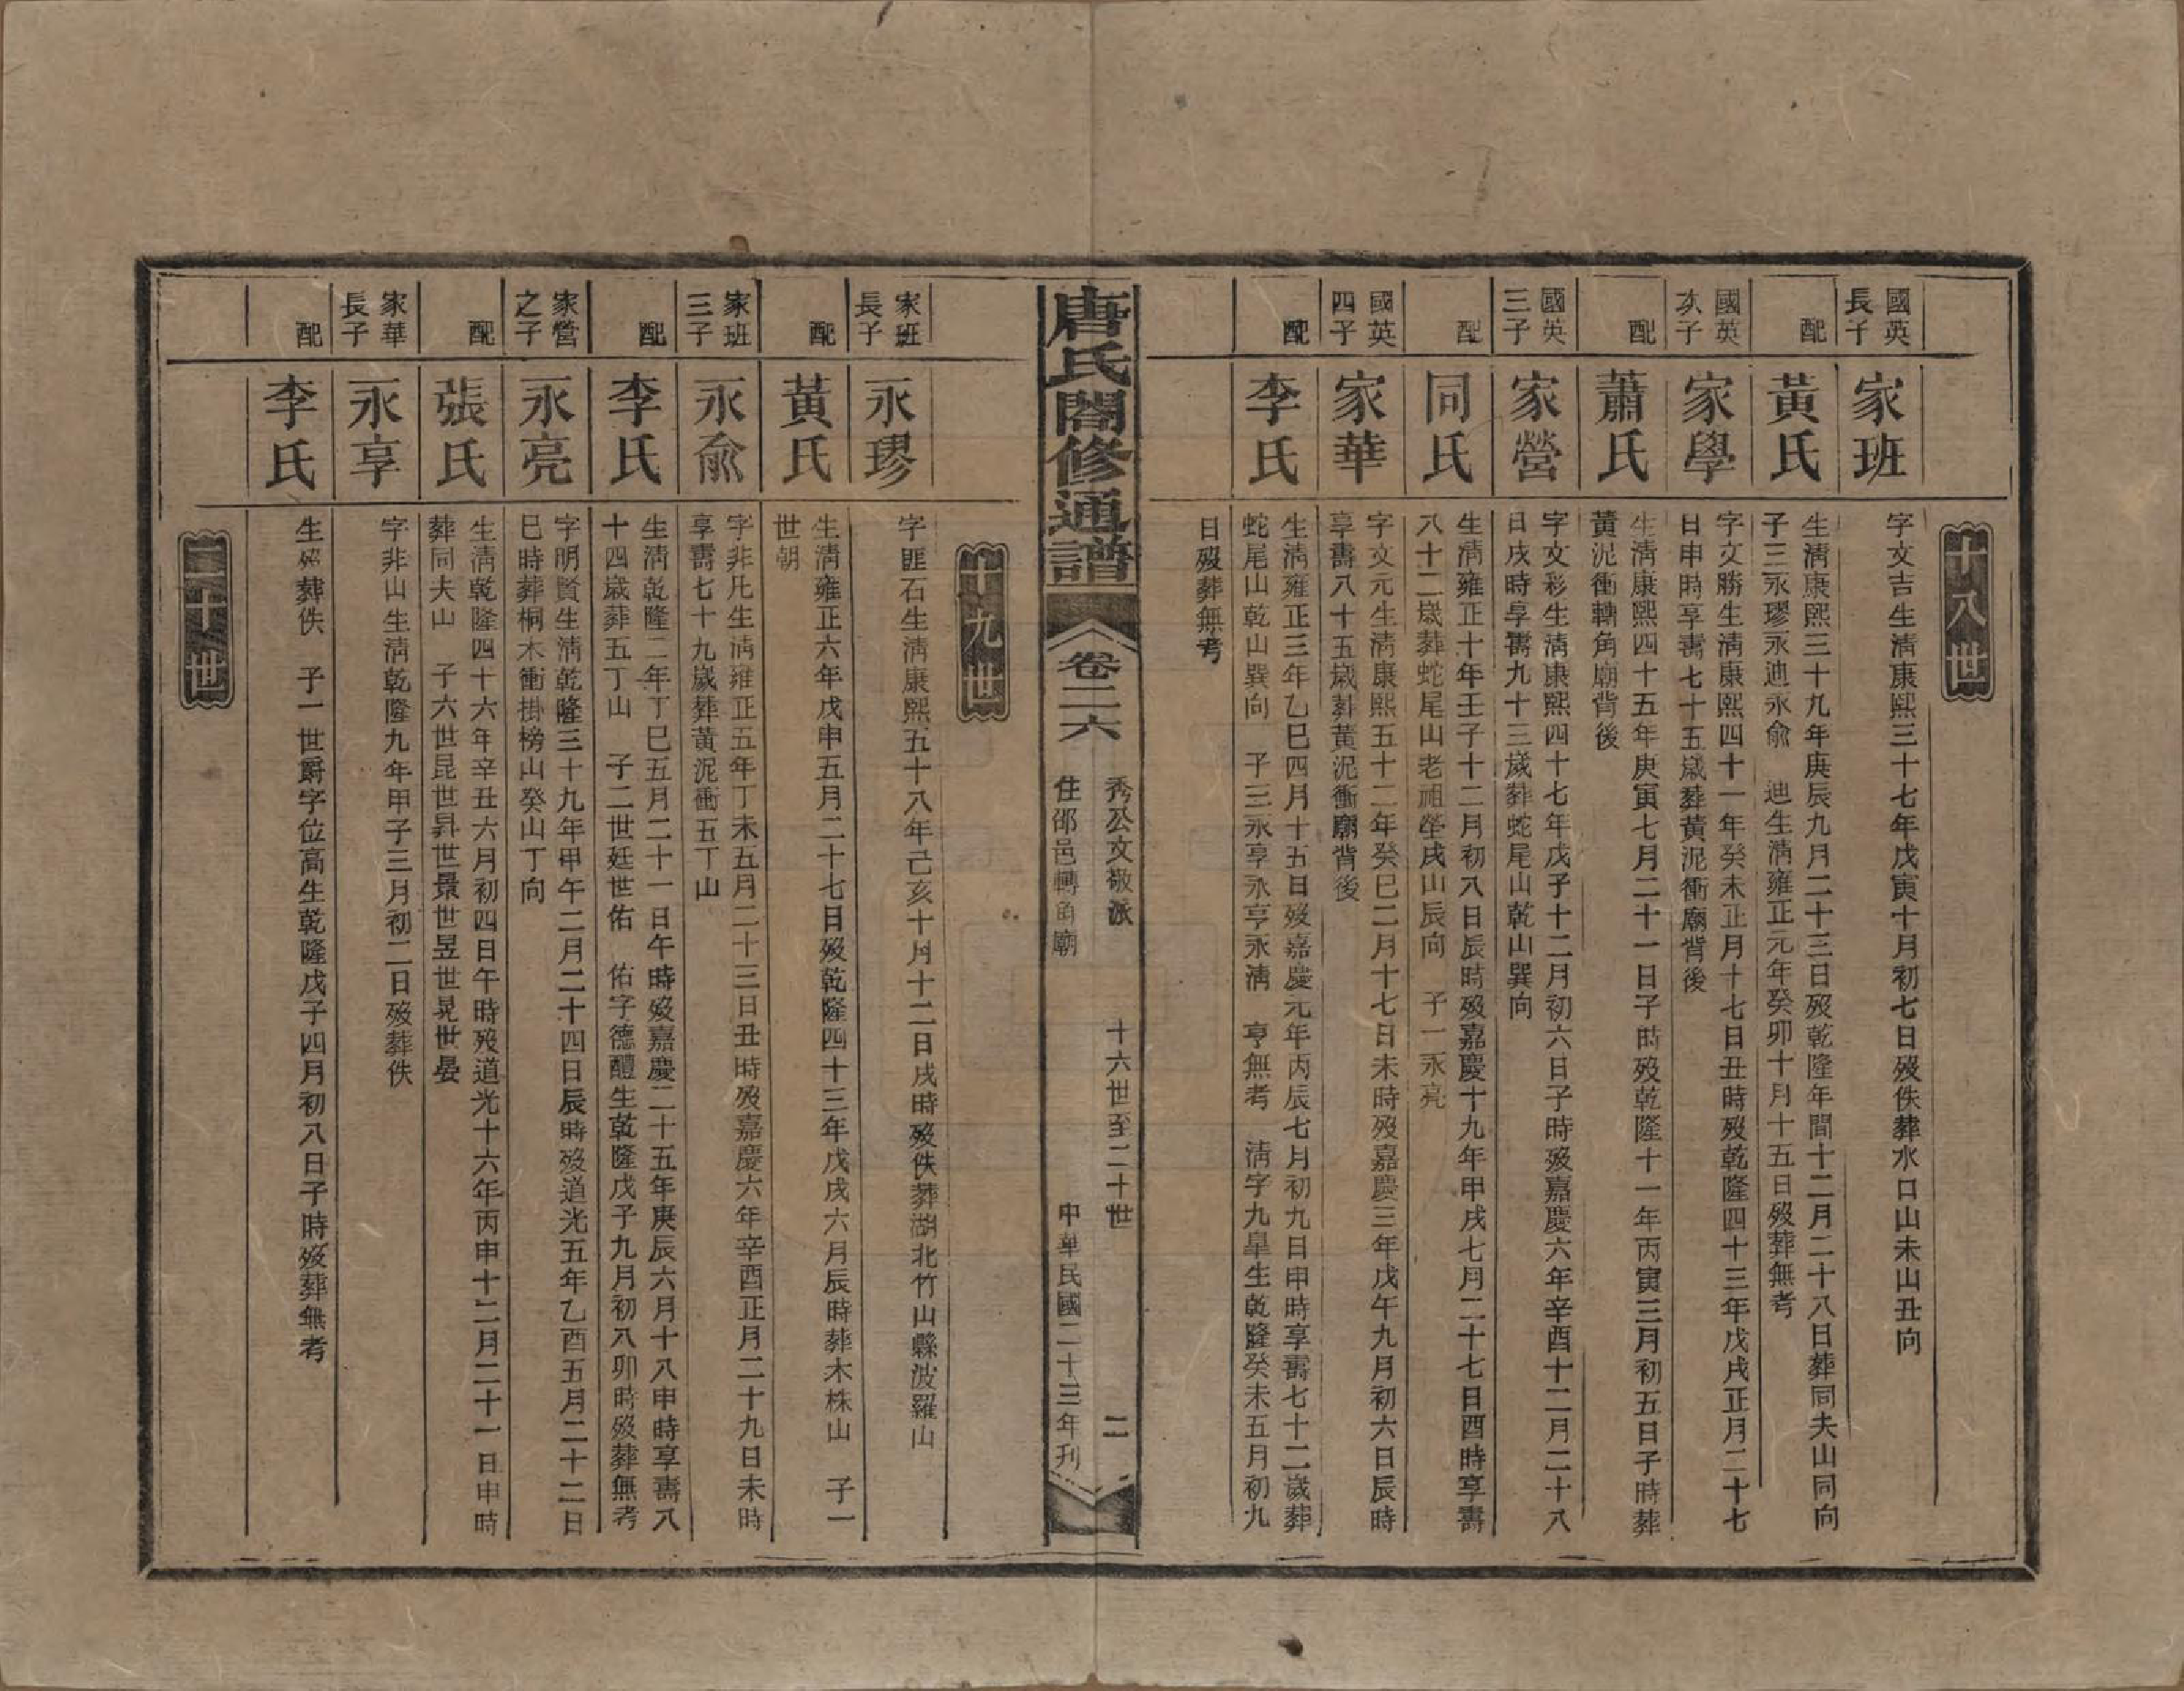 十八世
國英長子
家班
字文吉生淸康熙三十七年戊寅十月初七日歿佚葬水口山未山丑向
配
黃氏
生淸康熙三十九年庚辰九月二十三日歿乾隆年間十二月二十八日葬同夫山同向
子三永璆永迪永兪　迪生淸雍正元年癸卯十月十五日歿葬無考
國英次子
家學
字文勝生淸康熙四十一年癸未正月十七日丑時歿乾隆四十三年戊戌正月二十七
日申時享壽七十五歲葬黃泥衝廟背後
配
蕭氏
生淸康熙四十五年庚寅七月二十一日子時歿乾隆十一年丙寅三月初五日子時葬
黃泥衝轉角廟背後
國英三子
家營
字文彩生淸康熙四十七年戊子十二月初六日子時歿嘉慶六年辛酉十二月二十八
日戌時享壽九十三歲葬蛇尾山乾山巽向
配
同氏
生淸雍正十年壬子十二月初八日辰時歿嘉慶十九年甲戌七月二十七日酉時享壽
八十二歲葬蛇尾山老祖塋戌山辰向　子一永亮
國英四子
家華
字文元生淸康熙五十二年癸巳二月十七日未時歿嘉慶三年戊午九月初六日辰時
享壽八十五歲葬黃泥衝廟背後
配
李氏
生淸雍正三年乙巳四月十五日歿嘉慶元年丙辰七月初九日申時享壽七十二歲葬
蛇尾山乾山巽向　子三永享永亨永淸　亨無考　淸字九臯生乾隆癸未五月初九
日歿葬無考
唐氏閤修通譜
卷二六
秀公文敬派　十六世至二十世　二
住邵邑轉角廟　中華民國二十三年刋
十九世
家班長子
永璆
字匪石生淸康熙五十八年己亥十月十二日戌時歿佚葬湖北竹山縣波羅山
配
黃氏
生淸雍正六年戊申五月二十七日歿乾隆四十三年戊戌六月辰時葬木株山　子一
世朝
家班三子
永兪
字非凡生淸雍正五年丁未五月二十三日丑時歿嘉慶六年辛酉正月二十九日未時
享壽七十九歲葬黃泥衝五丁山
配
李氏
生淸乾隆二年丁巳五月二十一日午時歿嘉慶二十五年庚辰六月十八申時享壽八
十四歲葬五丁山　子二世廷世佑　佑字德醴生乾隆戊子九月初八卯時歿葬無考
家營之子
永亮
字明賢生淸乾隆三十九年甲午二月二十四日辰時歿道光五年乙酉五月二十二日
巳時葬桐木衝掛榜山癸山丁向
配
張氏
生淸乾隆四十六年辛丑六月初四日午時歿道光十六年丙申十二月二十一日申時
葬同夫山　子六世昆世昇世景世昱世晃世晏
家華長子
永享
字非山生淸乾隆九年甲子三月初二日歿葬佚
配
李氏
生歿葬佚　子一世爵字位高生乾隆戊子四月初八日子時歿葬無考
二十世